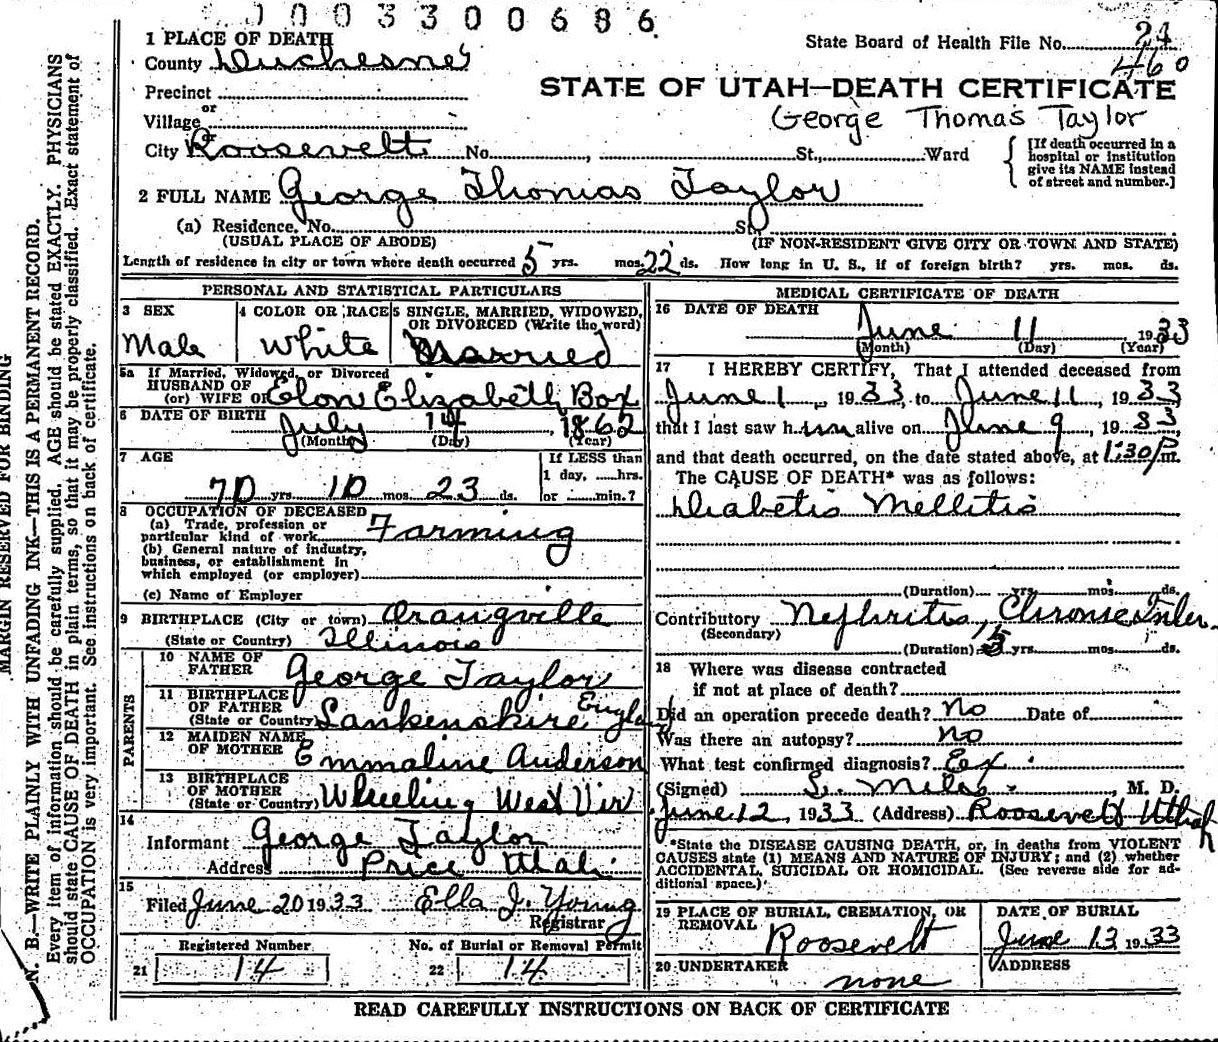 0003300686
1 PLACE OF DEATH
State Board of Health File No. 24
460
County Duchesne
STATE OF UTAH—DEATH CERTIFICATE
Precinct
or
George Thomas Taylor
Village
or
City Roosevelt No. , St., Ward
[If death occurred in a hospital or institution give its NAME instead of street and number.]
2 FULL NAME George Thomas Taylor
(a) Residence, No. St.
(USUAL PLACE OF ABODE) (IF NON-RESIDENT GIVE CITY OR TOWN AND STATE)
Length of residence in city or town where death occurred 5 yrs. mos. 22 ds. How long in U. S., if of foreign birth? yrs. mos. ds.
PERSONAL AND STATISTICAL PARTICULARS
3 SEX
Male
4 COLOR OR RACE
White
5 SINGLE, MARRIED, WIDOWED, OR DIVORCED (Write the word)
Married
5a If Married, Widowed, or Divorced
HUSBAND OF
(or) WIFE OF Elon Elizabeth Box
6 DATE OF BIRTH July 14, 1862
(Month) (Day) (Year)
7 AGE
If LESS than
1 day, ....hrs.
or ....min.?
70 yrs. 10 mos. 23 ds.
8 OCCUPATION OF DECEASED
(a) Trade, profession or
particular kind of work Farming
(b) General nature of industry,
business, or establishment in
which employed (or employer)
(c) Name of Employer
9 BIRTHPLACE (City or town) Orangville
(State or Country) Illinois
PARENTS
10 NAME OF
FATHER George Taylor
11 BIRTHPLACE
OF FATHER
(State or Country) Lankenshire England
12 MAIDEN NAME
OF MOTHER Emmaline Anderson
13 BIRTHPLACE
OF MOTHER
(State or Country) Wheeling West Vir
14
Informant George Taylor
Address Price Utah
15
Filed June 20 1933 Ella J. Young
Registrar
Registered Number
21 14
No. of Burial or Removal Permit
22 14
MEDICAL CERTIFICATE OF DEATH
16 DATE OF DEATH
June 11 1933
(Month) (Day) (Year)
17 I HEREBY CERTIFY, That I attended deceased from
June 1, 1933, to June 11, 1933
that I last saw him alive on June 9, 1933
and that death occurred, on the date stated above, at 1:30 p m.
The CAUSE OF DEATH* was as follows:
Diabetis Mellitis
(Duration) yrs. mos. ds.
Contributory Nephritis, Chronic Inter.
(Secondary)
(Duration) yrs. mos. ds.
18 Where was disease contracted
if not at place of death?
Did an operation precede death? No Date of
Was there an autopsy? no
What test confirmed diagnosis? Ex
(Signed) Miles, M. D.
June 12, 1933 (Address) Roosevelt Utah
*State the DISEASE CAUSING DEATH, or, in deaths from VIOLENT
CAUSES state (1) MEANS AND NATURE OF INJURY; and (2) whether
ACCIDENTAL, SUICIDAL OR HOMICIDAL. (See reverse side for ad-
ditional space.)
19 PLACE OF BURIAL, CREMATION, OR
REMOVAL
Roosevelt
DATE OF BURIAL
June 13 1933
20 UNDERTAKER
none
ADDRESS
READ CAREFULLY INSTRUCTIONS ON BACK OF CERTIFICATE
MARGIN RESERVED FOR BINDING
N. B.—WRITE PLAINLY WITH UNFADING INK—THIS IS A PERMANENT RECORD.
Every item of information should be carefully supplied. AGE should be stated EXACTLY. PHYSICIANS
should state CAUSE OF DEATH in plain terms, so that it may be properly classified. Exact statement of
OCCUPATION is very important. See instructions on back of certificate.